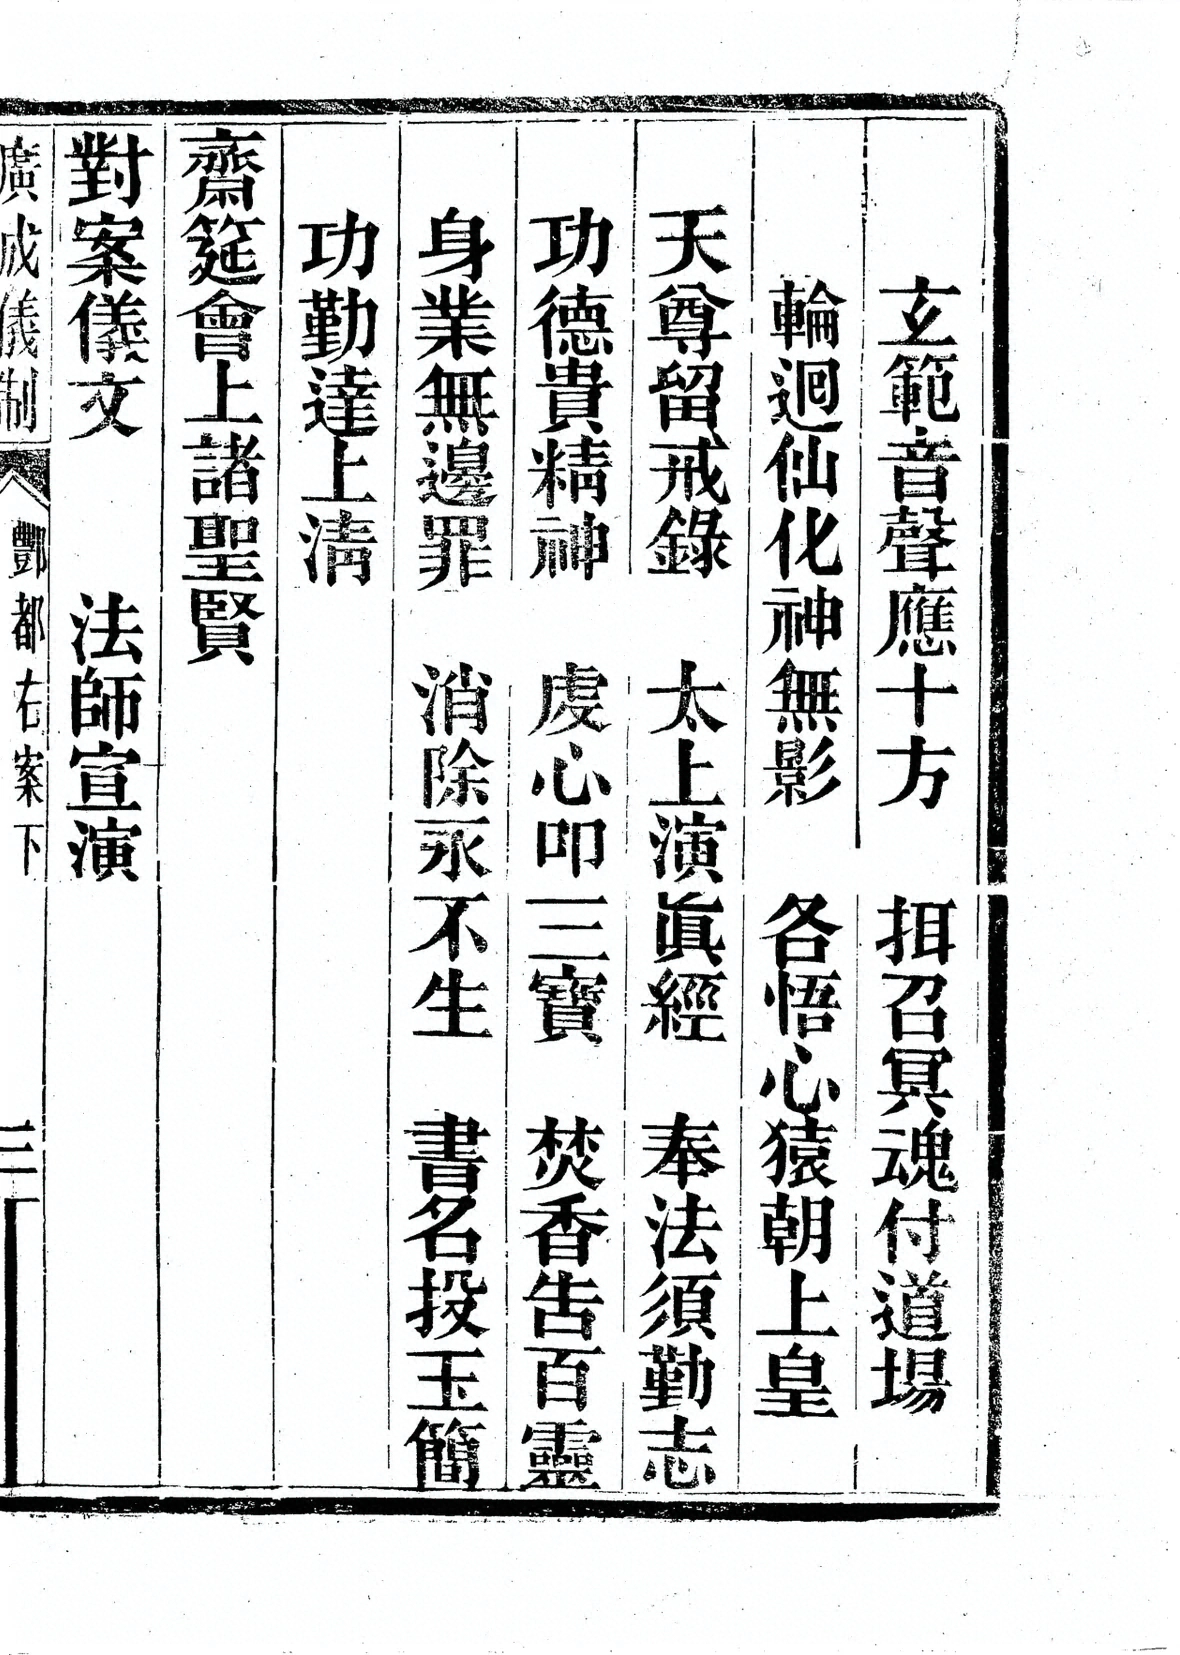 玄範音聲應十方　拜召冥魂付道場
輪迴仙化神無影　各悟心猿朝上皇
天尊留戒錄　太上演眞經　奉法須勤志
功德貴精神　虔心叩三寶　焚香告百靈
身業無邊罪　消除永不生　書名投玉簡
功勤達上清
齋筵會上諸聖賢
對案儀文　法師宣演
廣成儀制　酆都右案下　三